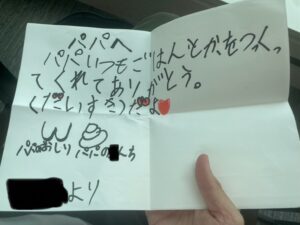 パパへ
パパいつもごはんとかをつくっ
てくれてありがとう。
くだいすきだよ
パパのおしり パパの んち
より